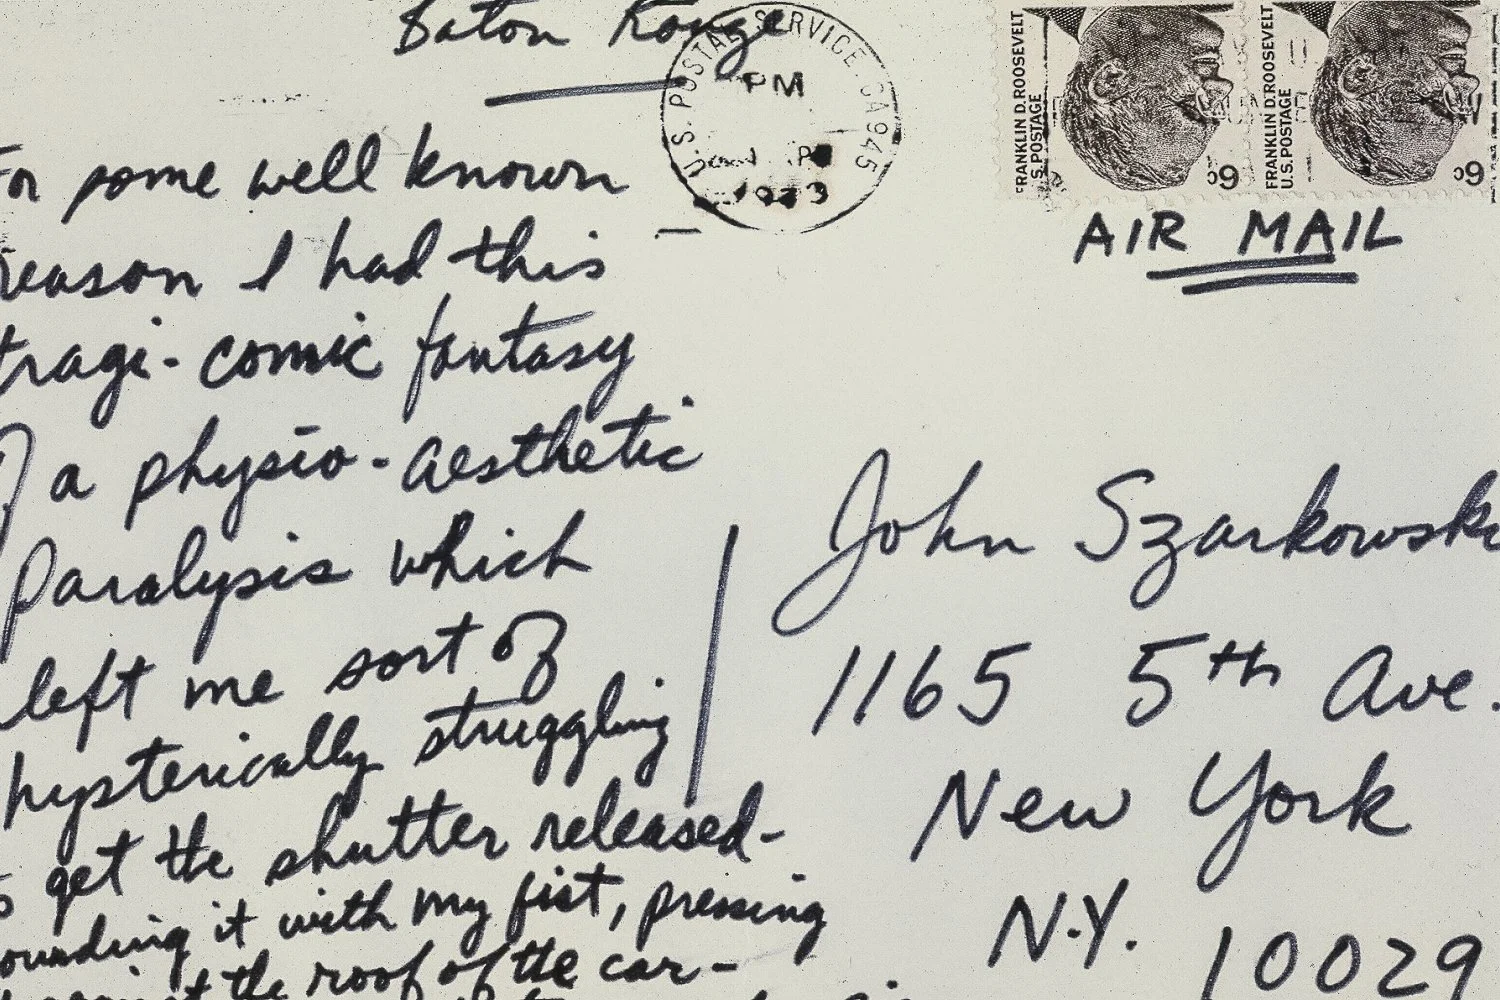 Baton Rouge
For some well known
reason I had this
tragi-comic fantasy
of a physio-aesthetic
paralysis which
left me sort of
hysterically struggling
to get the shutter released-
pounding it with my fist, pressing
against the roof of the car-
U.S. POSTAL SERVICE CA 945
PM
1973
FRANKLIN D. ROOSEVELT
U.S. POSTAGE
6¢
FRANKLIN D. ROOSEVELT
U.S. POSTAGE
6¢
AIR MAIL
John Szarkowski
1165 5th Ave.
New York
N.Y. 10029